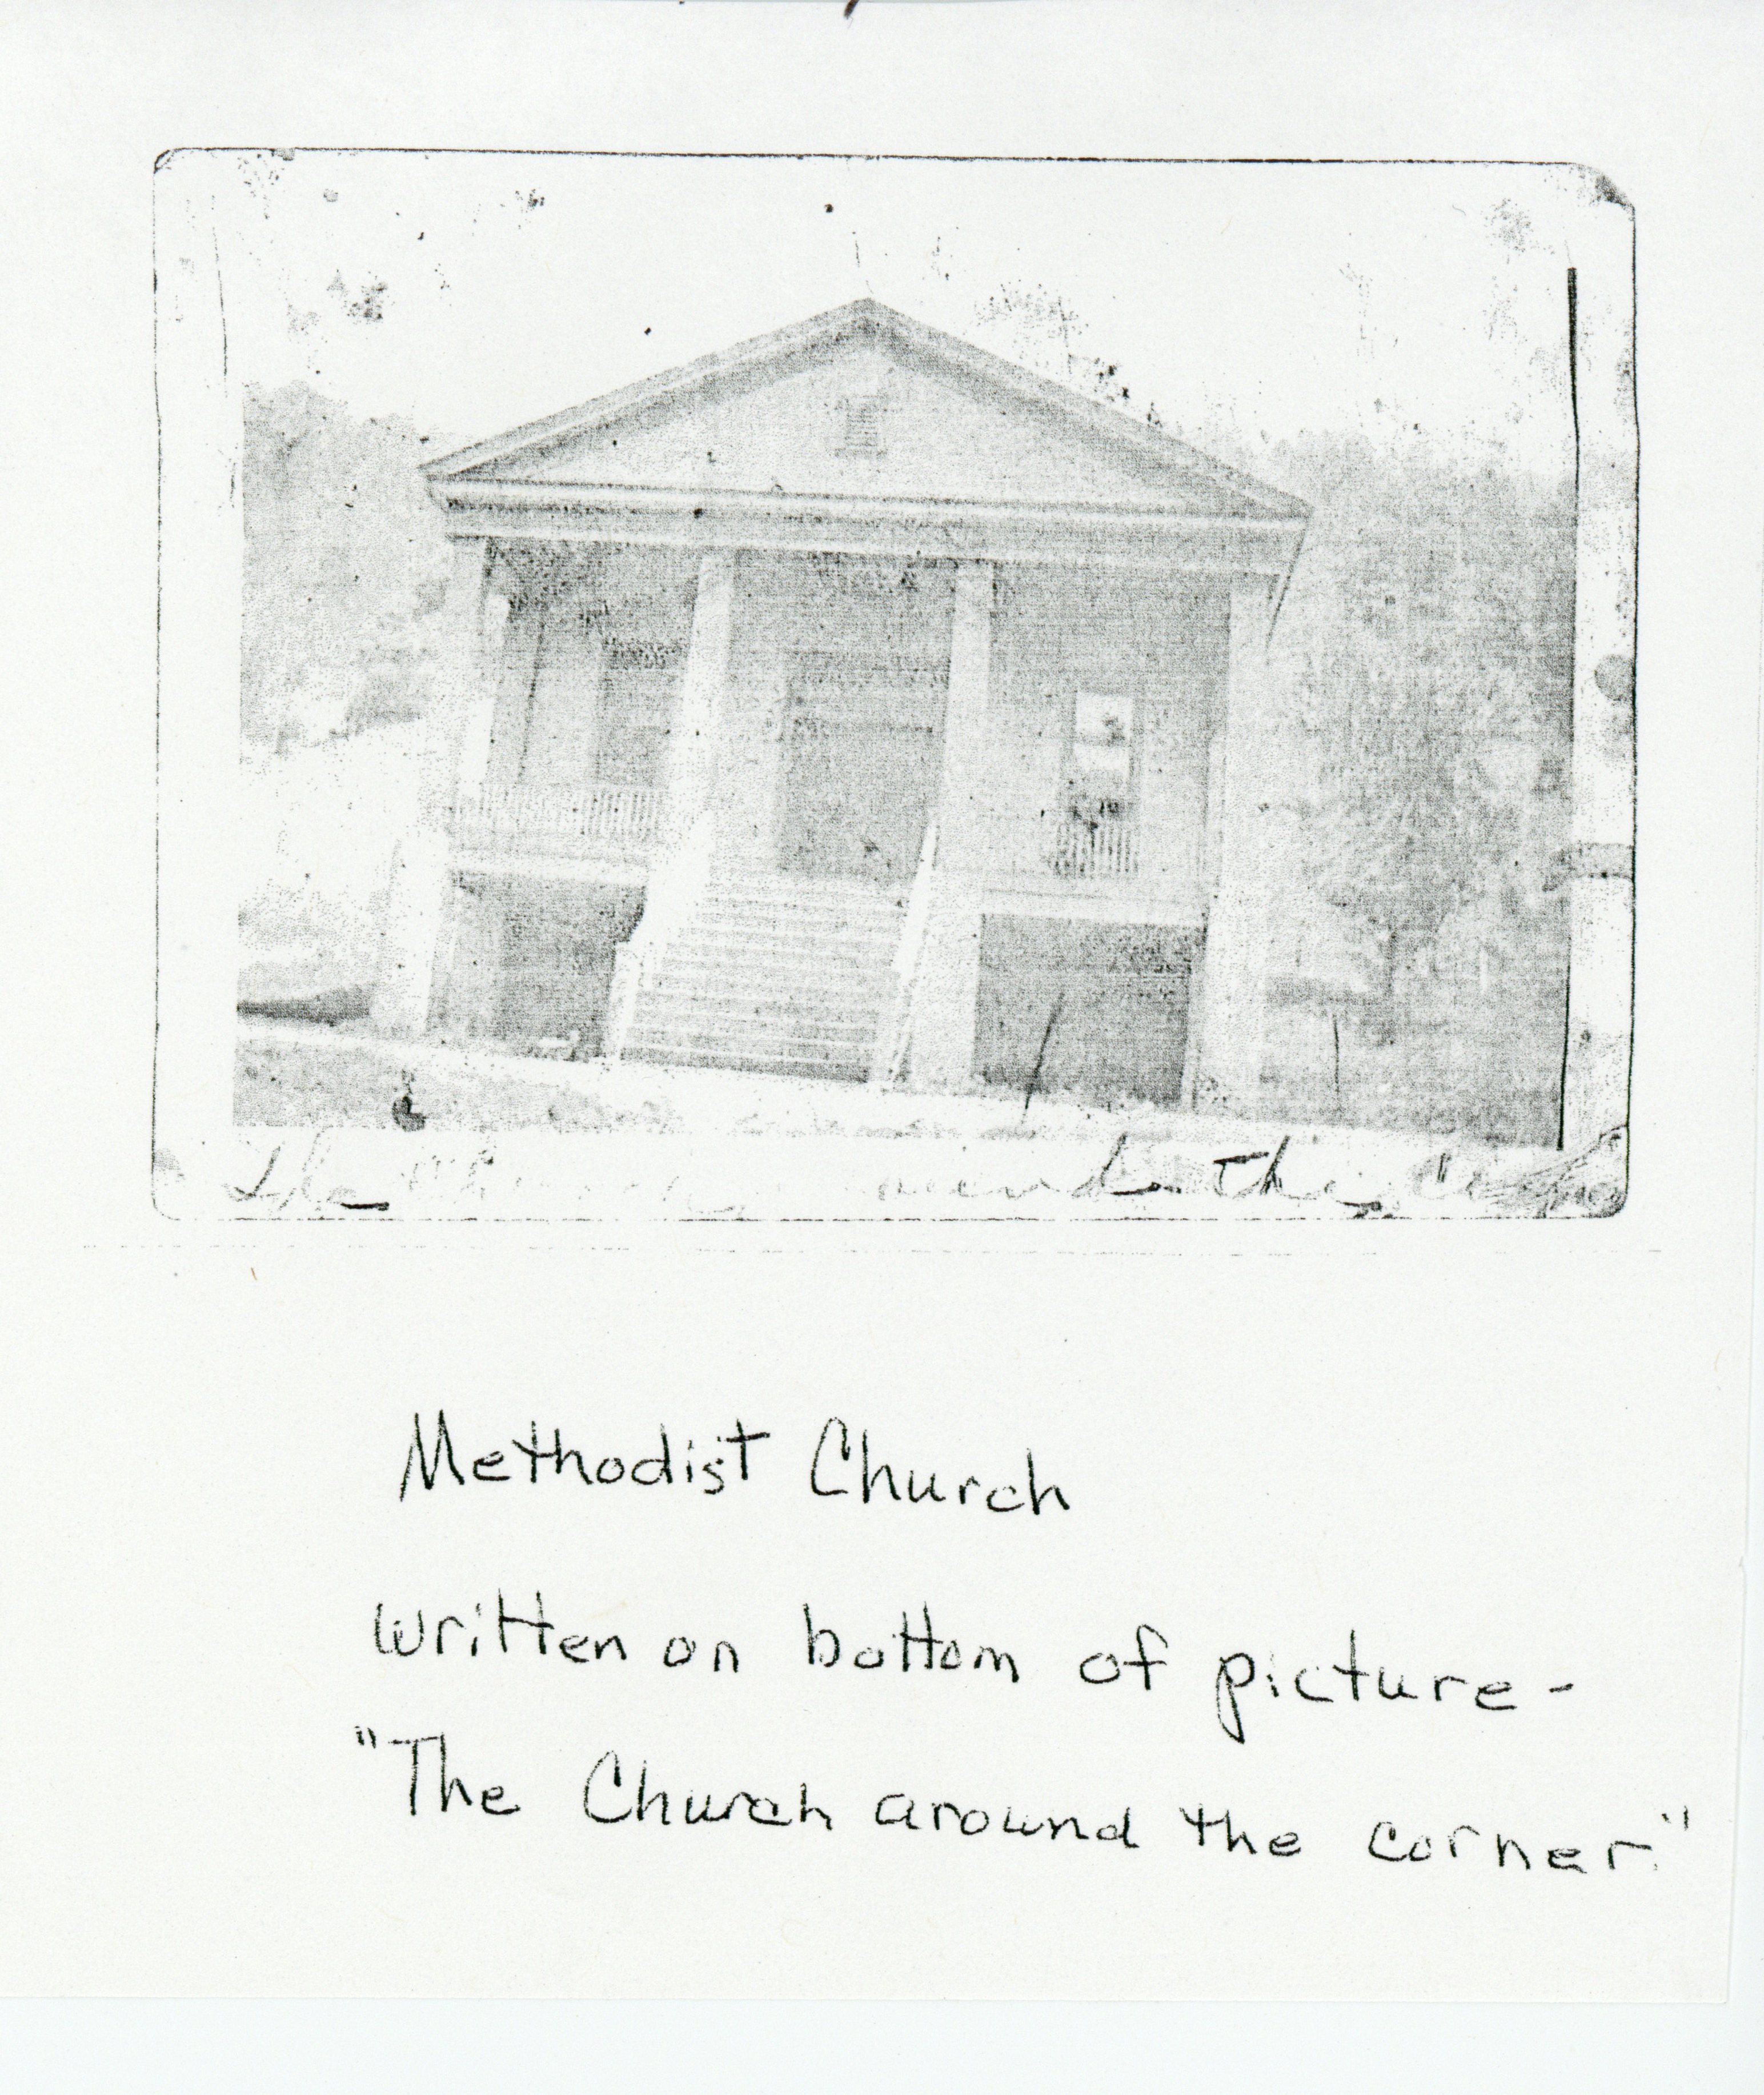 The Church around the
Methodist Church
Written on bottom of picture-
"The Church around the corner."